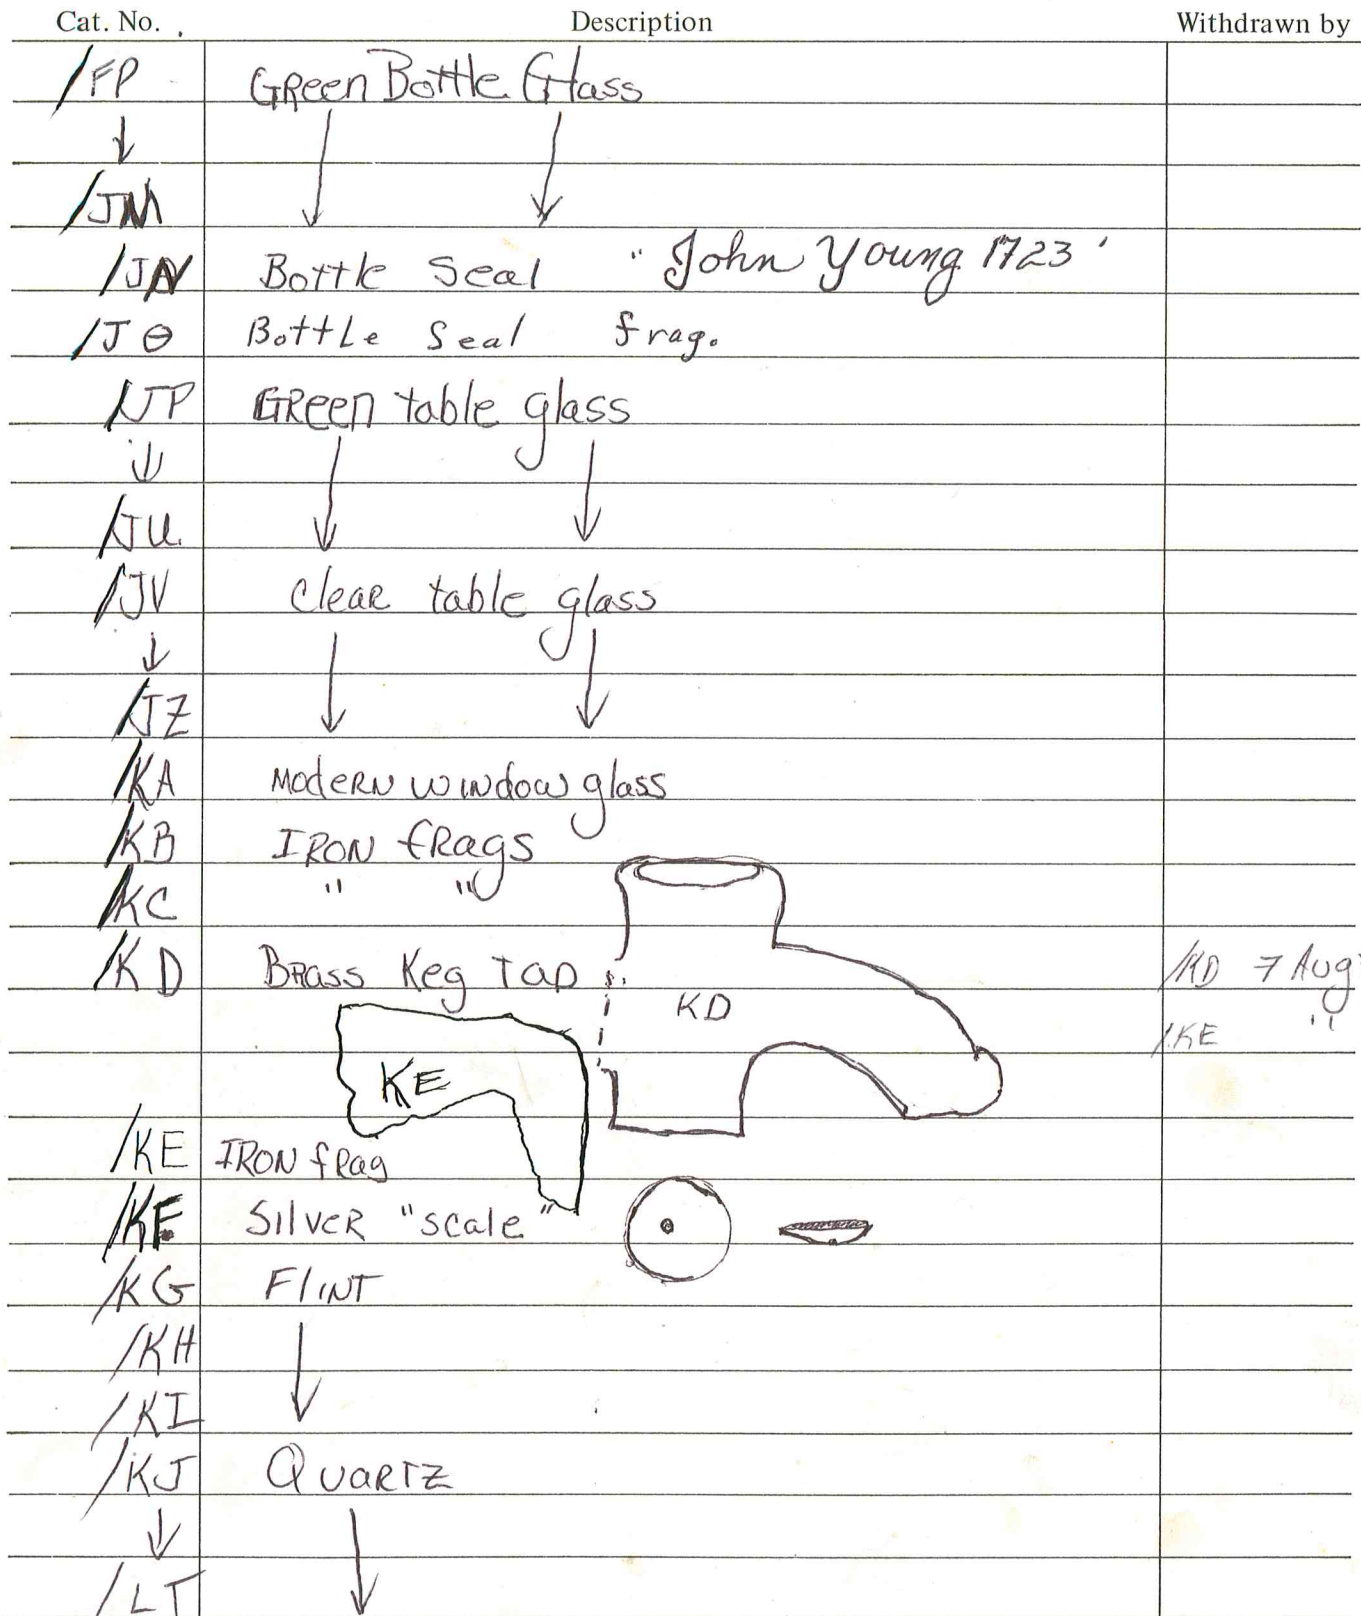 Cat. No. Description Withdrawn by
/FP Green Bottle Glass
↓ ↓ ↓
/JM
/JN Bottle Seal "John Young 1723'
/JO Bottle Seal frag.
/JP Green table glass
↓ ↓ ↓
/JU
/JV Clear table glass
↓ ↓ ↓
/JZ
/KA Modern window glass
/KB Iron frags
/KC " "
/KD Brass Keg Tap /KD 7 Aug
KD
/KE "
KE
/KE Iron frag
/KF Silver "scale"
/KG Flint
/KH ↓
/KI
/KJ Quartz
↓ ↓
/LT